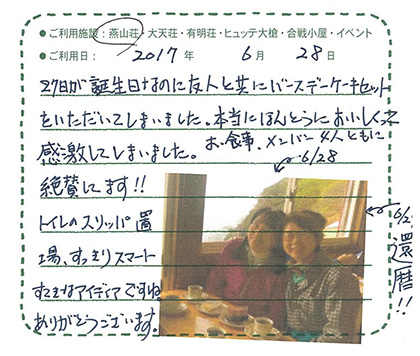 ●ご利用施設：燕山荘・大天荘・有明荘・ヒュッテ大槍・合戦小屋・イベント
●ご利用日： 2017 年 6 月 28 日
27日が誕生日なのに友人と共にバースデーケーキセット
をいただいてしまいました。本当にほんとうにおいしくって
感激してしまいました。
お食事、メンバー4人ともに
絶賛します!!
6/28
トイレのスリッパ置
場、すっきりスマート
すてきなアイディアですね
ありがとうございます。
還暦!!